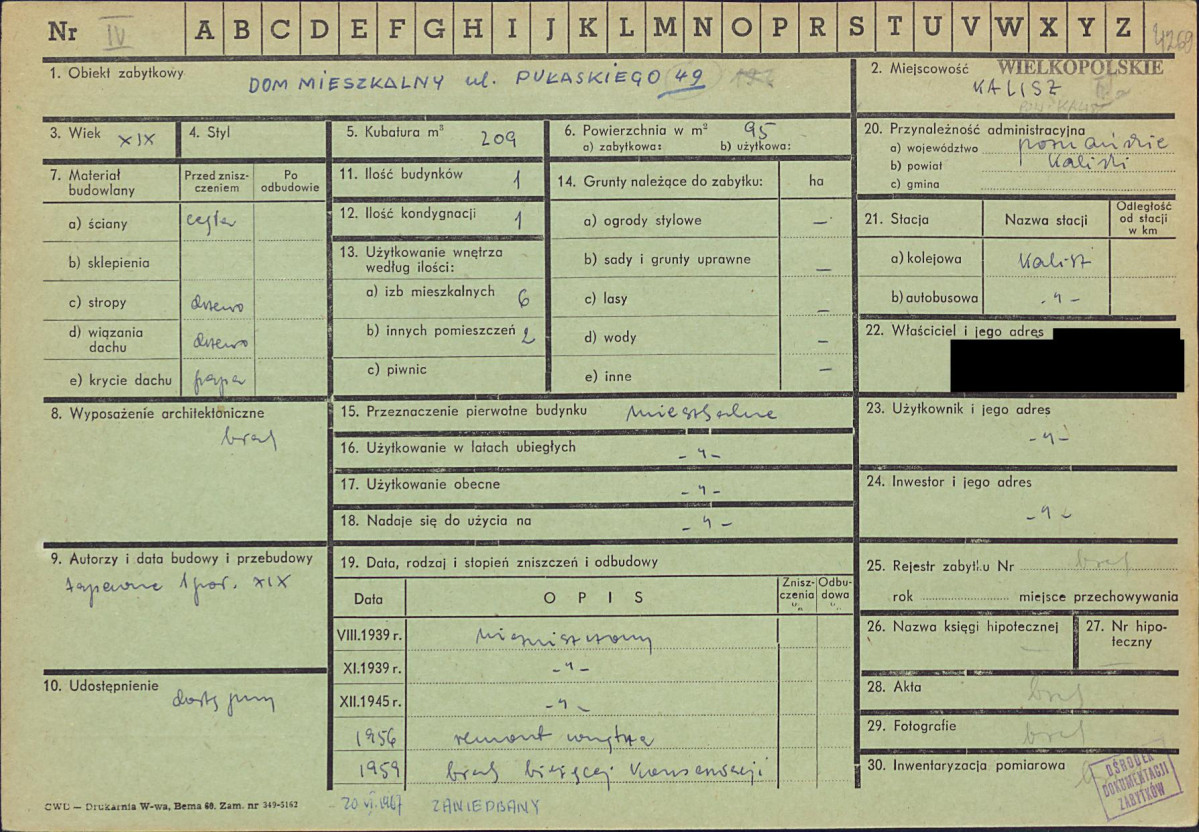 Nr IV A B C D E F G H I J K L M N O P R S T U V W X Y Z 4269
1. Obiekt zabytkowy DOM MIESZKALNY ul. PUŁASKIEGO 49
2. Miejscowość WIELKOPOLSKIE
KALISZ
3. Wiek XIX
4. Styl
5. Kubatura m³ 209
6. Powierzchnia w m² 95
a) zabytkowa: b) użytkowa:
7. Materiał budowlany
Przed znisz-
czeniem
Po
odbudowie
a) ściany cegła
b) sklepienia
c) stropy drzewo
d) wiązania
dachu drzewo
e) krycie dachu papa
8. Wyposażenie architektoniczne
brak
9. Autorzy i data budowy i przebudowy
zapewne 1 poł. XIX
10. Udostępnienie
dostępny
11. Ilość budynków 1
12. Ilość kondygnacji 1
13. Użytkowanie wnętrza
według ilości:
a) izb mieszkalnych 6
b) innych pomieszczeń 2
c) piwnic
14. Grunty należące do zabytku: ha
a) ogrody stylowe —
b) sady i grunty uprawne —
c) lasy —
d) wody —
e) inne —
15. Przeznaczenie pierwotne budynku mieszkalne
16. Użytkowanie w latach ubiegłych -"-
17. Użytkowanie obecne -"-
18. Nadaje się do użycia na -"-
19. Data, rodzaj i stopień zniszczeń i odbudowy
Data OPIS
Znisz-
czenia
"%
Odbu-
dowa
"%
VIII.1939 r. niezniszczony
XI.1939 r. -"-
XII.1945 r. -"-
1956 remont wnętrza
1959 brak bieżącej konserwacji
20 VI.1967 ZANIEDBANY
20. Przynależność administracyjna
a) województwo poznańskie
b) powiat Kaliski
c) gmina
21. Stacja Nazwa stacji
Odległość
od stacji
w km
a) kolejowa Kalisz
b) autobusowa -"-
22. Właściciel i jego adres
23. Użytkownik i jego adres
-"-
24. Inwestor i jego adres
-"-
25. Rejestr zabytku Nr brak
rok miejsce przechowywania
26. Nazwa księgi hipotecznej
27. Nr hipo-
teczny
28. Akta brak
29. Fotografie brak
30. Inwentaryzacja pomiarowa
OŚRODEK
DOKUMENTACJI
ZABYTKÓW
CWD — Drukarnia W-wa, Bema 60. Zam. nr 349-5162